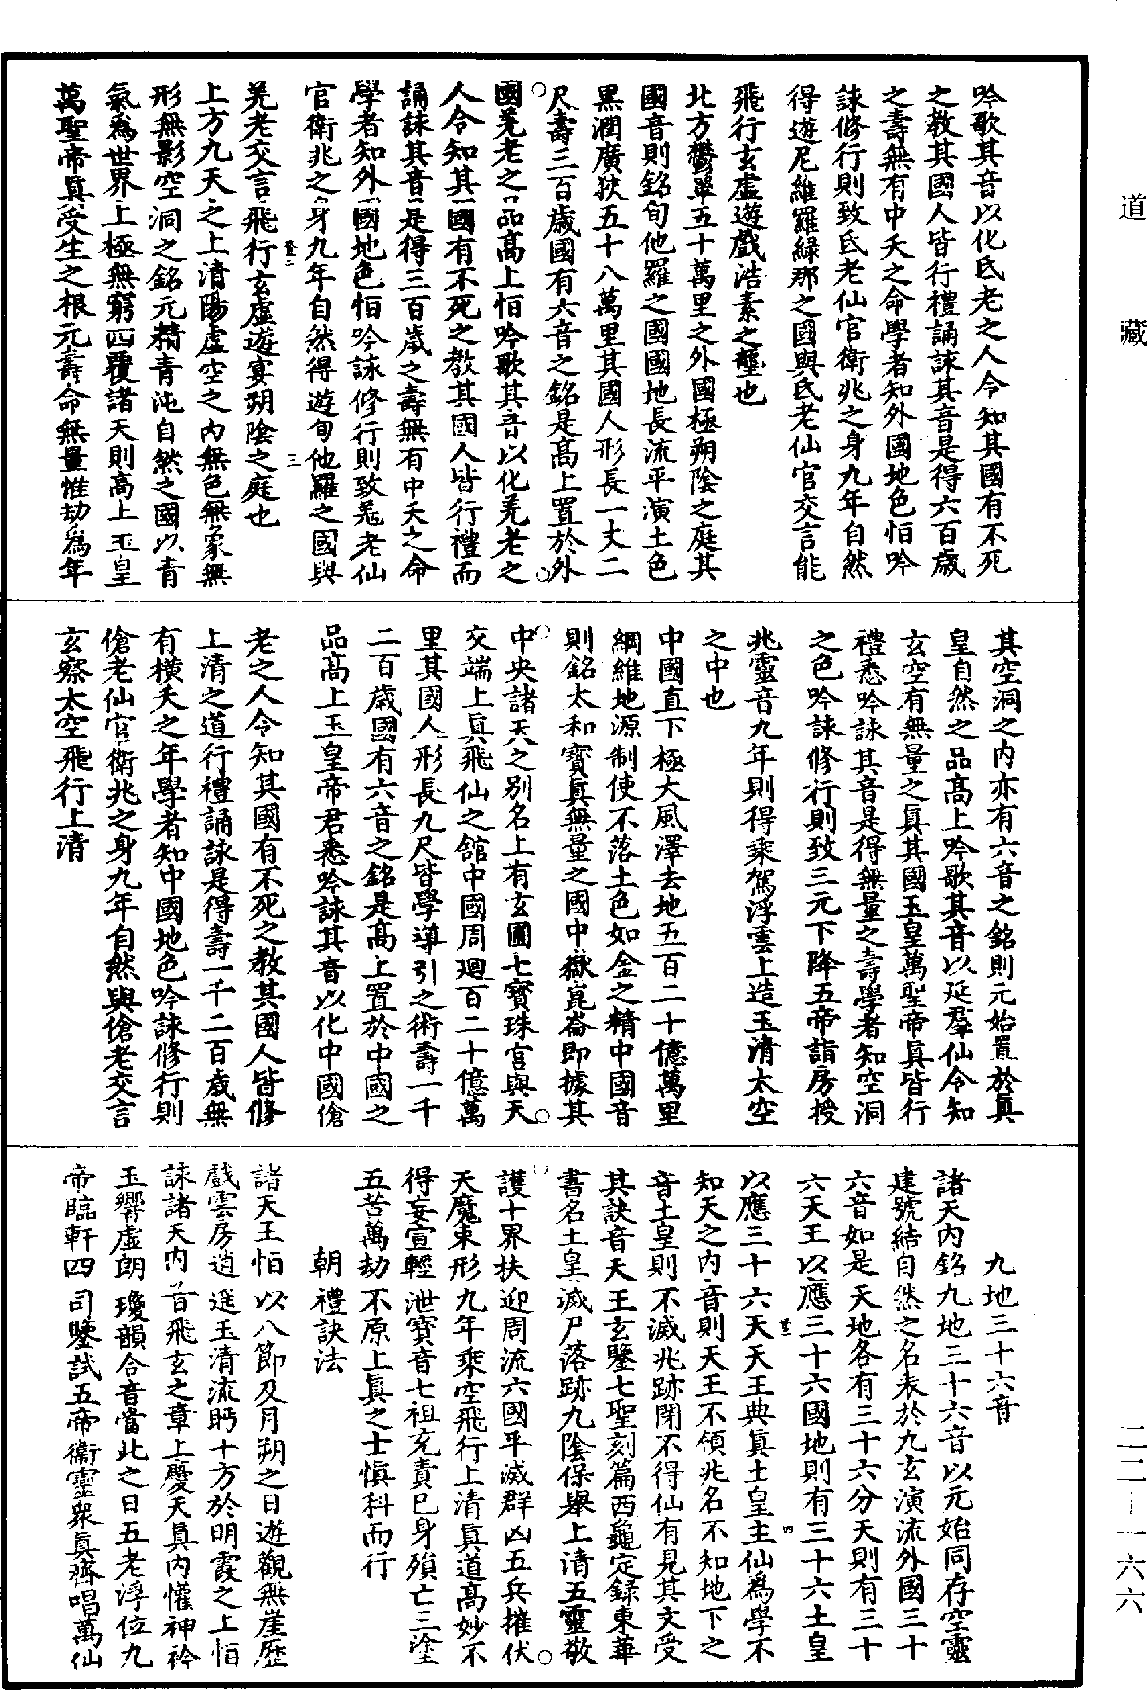 吟歌其音以化氐老之人令知其國有不死
之教其國人皆行禮誦詠其音是得六百歲
之壽無有中夭之命學者知外國地色怕吟
詠修行則致氐老仙官衛兆之身九年自然
得遊尼維羅綠那之國與氐老仙官交言能
飛行玄虛遊戲浩素之壟也
北方鬱單五十萬里之外國極朔陰之庭其
國音則銘旬他羅之國國地長流平演土色
黑潤廣狹五十八萬里其國人形長一丈二
尺壽三百歲國有六音之銘是高上置於外
國羌老之品高上怕吟歌其音以化羌老之
人令知其國有不死之教其國人皆行禮而
誦詠其音是得三百歲之壽無有中夭之命
學者知外國地色怕吟詠修行則致羌老仙
官衛兆之身九年自然得遊旬他羅之國與
羌老交言飛行玄虛遊宴朔陰之庭也
上方九天之上清陽虛空之內無色無象無
形無影空洞之銘元精青沌自然之國以青
氣為世界上極無窮四覆諸天則高上玉皇
萬聖帝真受生之根元壽命無量惟劫為年
其空洞之內亦有六音之銘則元始置於真
皇自然之品高上吟歌其音以延羣仙令知
玄空有無量之真其國玉皇萬聖帝真皆行
禮悉吟詠其音是得無量之壽學者知空洞
之色吟詠修行則致三元下降五帝詣房授
兆靈音九年則得乘駕浮雲上造玉清太空
之中也
中國直下極大風澤去地五百二十億萬里
綱維地源制使不落土色如金之精中國音
則銘太和寶真無量之國中嶽崑崙即據其
中央諸天之別名上有玄圃七寶珠宮與天
交端上真飛仙之館中國周迴百二十億萬
里其國人形長九尺皆學導引之術壽一千
二百歲國有六音之銘是高上置於中國之
品高上玉皇帝君悉吟詠其音以化中國傖
老之人令知其國有不死之教其國人皆修
上清之道行禮誦詠是得壽一千二百歲無
有橫夭之年學者知中國地色吟詠修行則
傖老仙官衛兆之身九年自然與傖老交言
玄察太空飛行上清
九地三十六音
諸天內銘九地三十六音以元始同存空靈
建號結自然之名表於九玄演流外國三十
六音如是天地各有三十六分天則有三十
六天王以應三十六國地則有三十六土皇
以應三十六天天王典真土皇主仙為學不
知天之內音則天王不領兆名不知地下之
音土皇則不滅兆跡閉不得仙有見其文受
其訣音天王玄鑒七聖刻篇西龜定錄東華
書名土皇滅尸落跡九陰保舉上清五靈敬
護十界扶迎周流六國平滅群凶五兵摧伏
天魔束形九年乘空飛行上清真道高妙不
得妄宣輕泄寶音七祖充責已身殞亡三塗
五苦萬劫不原上真之士慎科而行
朝禮訣法
諸天王怕以八節及月朔之日遊觀無崖歷
戲雲房逍遙玉清流眄十方於明霞之上怕
詠諸天內音飛玄之章上慶天真內懽神衿
玉響虛朗瓊韻合音當此之日五老浮位九
帝臨軒四司鑒試五帝衛靈眾真齊唱萬仙
道藏
二二-一六六